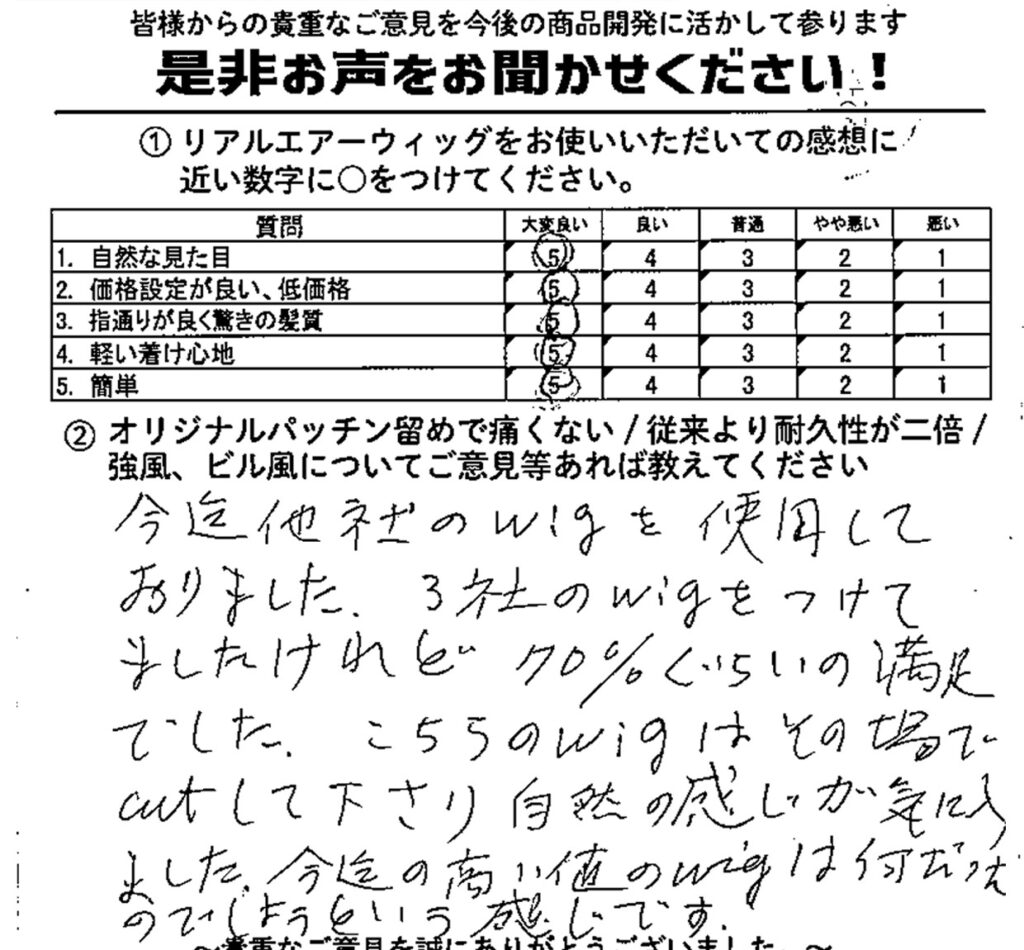 皆様からの貴重なご意見を今後の商品開発に活かして参ります
是非お声をお聞かせください!
① リアルエアーウィッグをお使いいただいての感想に
近い数字に○をつけてください。
質問 大変良い 良い 普通 やや悪い 悪い
1. 自然な見た目 5 4 3 2 1
2. 価格設定が良い、低価格 5 4 3 2 1
3. 指通りが良く驚きの髪質 5 4 3 2 1
4. 軽い着け心地 5 4 3 2 1
5. 簡単 5 4 3 2 1
② オリジナルパッチン留めで痛くない/従来より耐久性が二倍/
強風、ビル風についてご意見等あれば教えてください
今迄他社のwigを使用して
おりました. 3社のwigをつけて
ましたけれど 70%ぐらいの満足
でした. こちらのwigはその場で
cutして下さり自然の感じが気に入り
ました. 今迄の高い値のwigは何だった
のでしょうという感じです.
〜貴重なご意見を誠にありがとうございました。〜